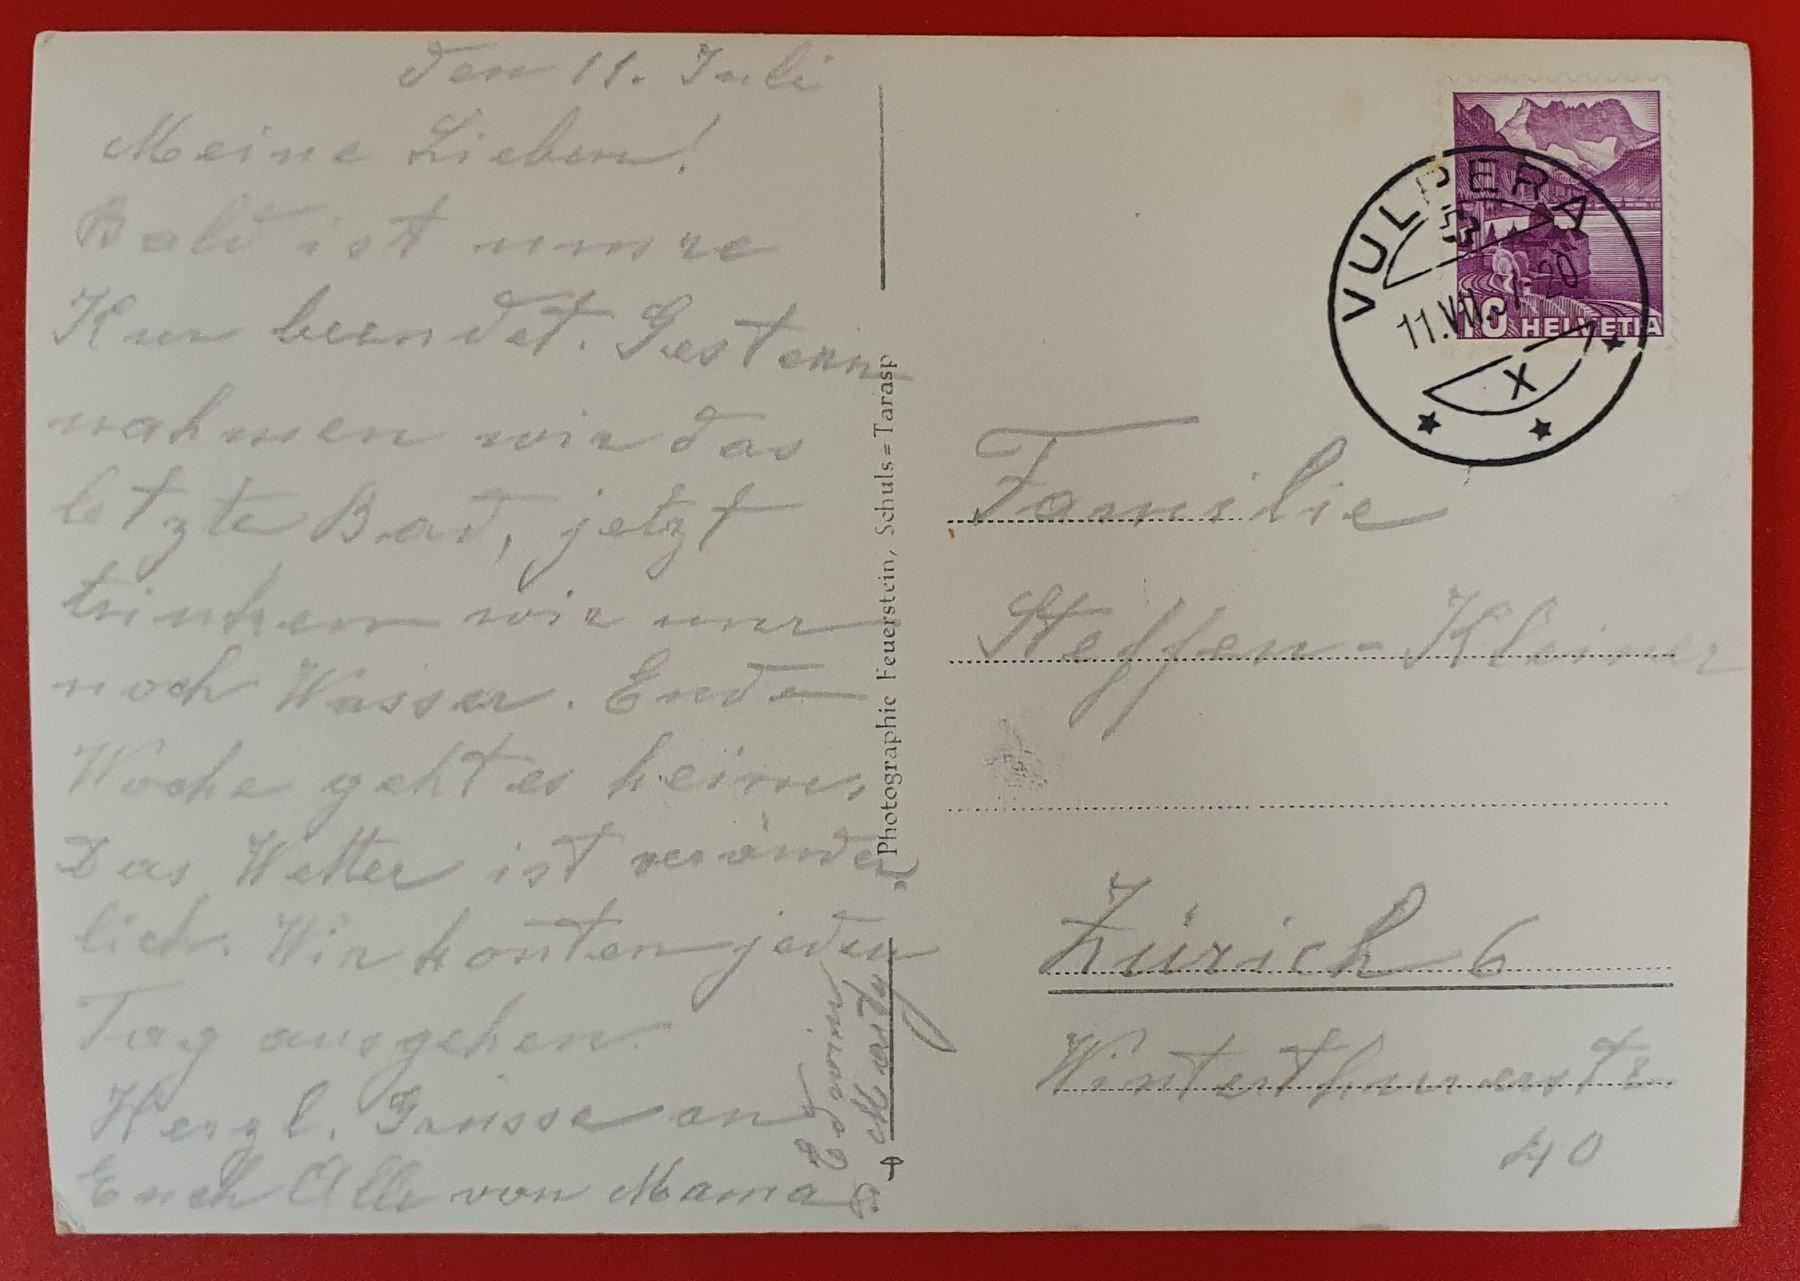 den 11. Juli
Meine Lieben!
Bald ist unsre
Kur beendet. Gestern
nahmen wir das
letzte Bad, jetzt
trinken wir nur
noch Wasser. Ende
Woche geht es heim.
Das Wetter ist veränder
lich. Wir konten jeden
Tag ausgehen.
Herzl. Grüsse an
Euch Alle von Mama
Photographie Feuerstein, Schuls=Tarasp
VULPERA
11.VII.
20
X
10 HELVETIA
Familie
Steffen-Kleiner
Zürich 6
Winterthurerstr
40